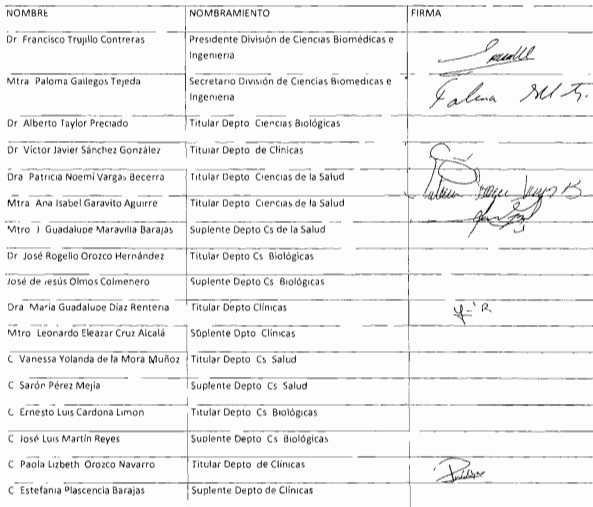 NOMBRE NOMBRAMIENTO FIRMA
Dr Francisco Trujillo Contreras Presidente División de Ciencias Biomédicas e
Ingenieria
Mtra Paloma Gallegos Tejeda Secretario División de Ciencias Biomedicas e
Ingenieria
Dr Alberto Taylor Preciado Titular Depto Ciencias Biológicas
Dr Victor Javier Sánchez González Titular Depto de Clínicas
Dra Patricia Noemi Vargas Becerra Titular Depto Ciencias de la Salud
Mtra Ana Isabel Garavito Aguirre Titular Depto Ciencias de la Salud
Mtro J Guadalupe Maravilla Barajas Suplente Depto Cs de la Salud
Dr José Rogelio Orozco Hernández Titular Depto Cs Biológicas
José de Jesús Olmos Colmenero Suplente Depto Cs Biológicas
Dra Maria Guadalupe Díaz Renteria Titular Depto Clínicas
Mtro Leonardo Eleazar Cruz Alcalá Suplente Dpto Clinicas
C Vanessa Yolanda de la Mora Muñoz Titular Depto Cs Salud
C Sarón Pérez Mejía Suplente Depto Cs Salud
C Ernesto Luis Cardona Limon Titular Depto Cs Biológicas
C José Luis Martín Reyes Suplente Depto Cs Biológicas
C Paola Lizbeth Orozco Navarro Titular Depto de Clínicas
C Estefania Plascencia Barajas Suplente Depto de Clínicas